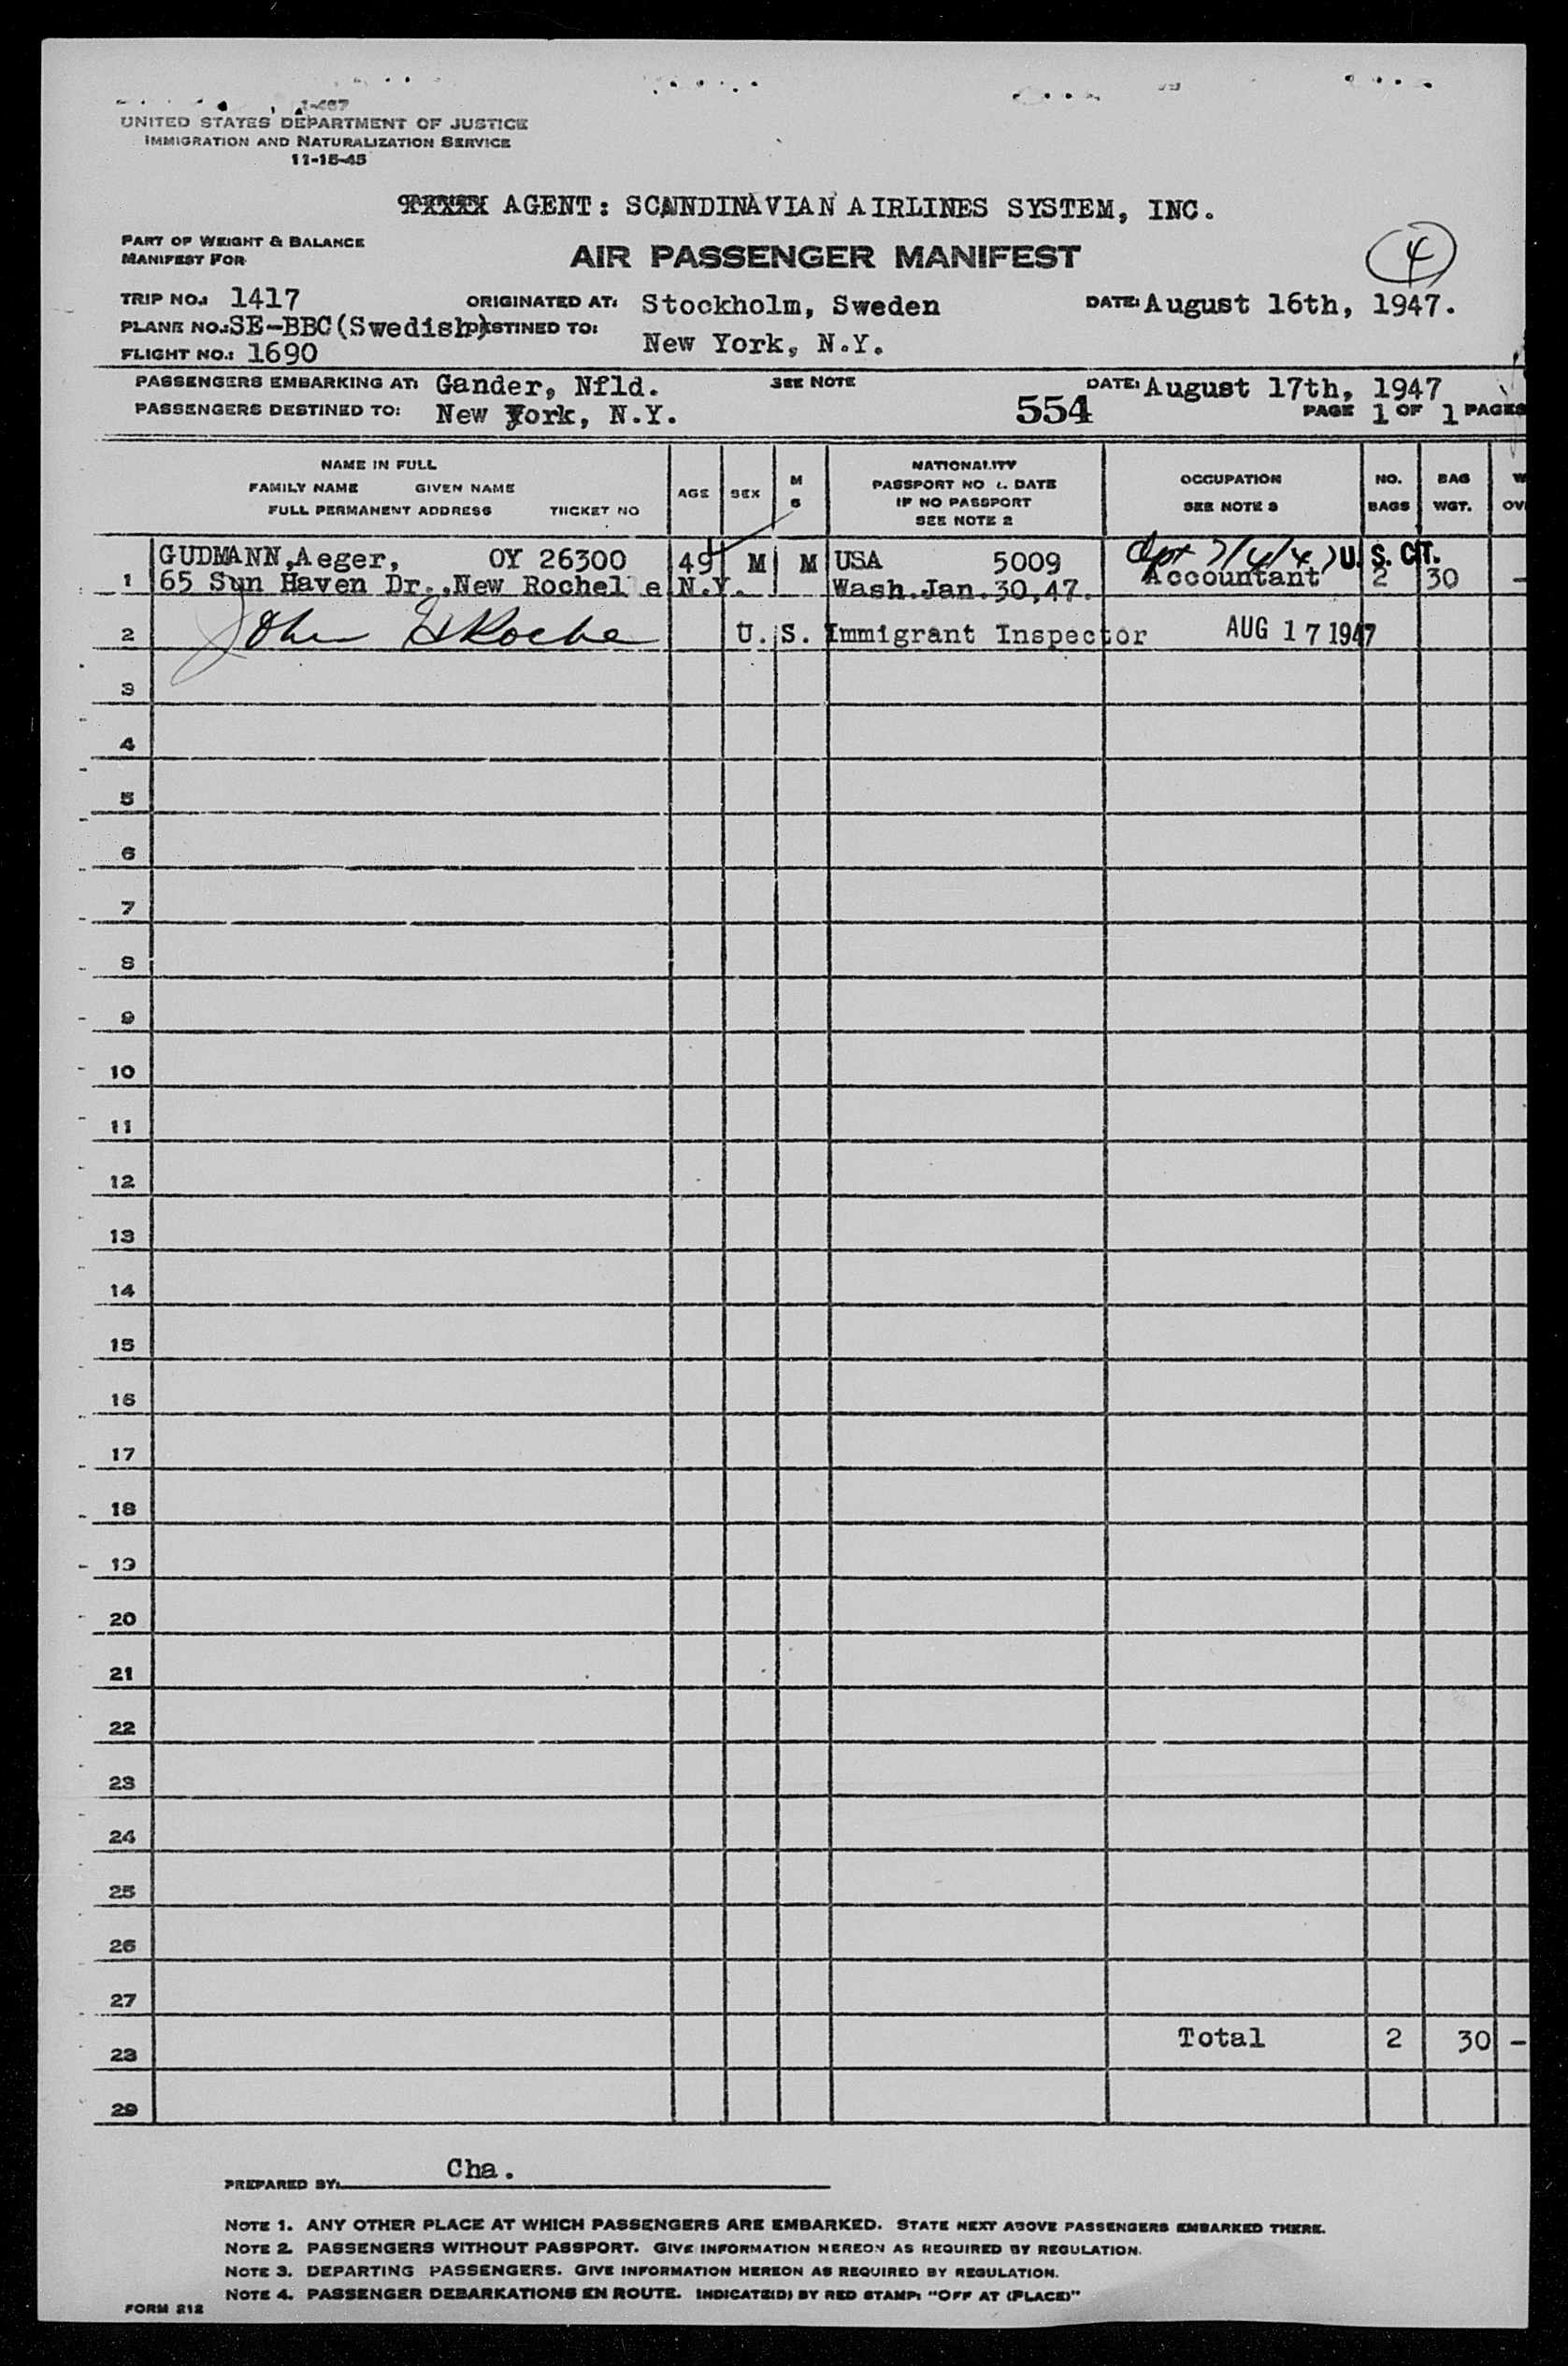 I-467
UNITED STATES DEPARTMENT OF JUSTICE
IMMIGRATION AND NATURALIZATION SERVICE
11-15-45
AGENT: SCANDINAVIAN AIRLINES SYSTEM, INC.
PART OF WEIGHT & BALANCE
MANIFEST FOR
AIR PASSENGER MANIFEST
4
TRIP NO.: 1417 ORIGINATED AT: Stockholm, Sweden DATE: August 16th, 1947.
PLANE NO.: SE-BBC(Swedish) DESTINED TO:
New York, N.Y.
FLIGHT NO.: 1690
PASSENGERS EMBARKING AT: Gander, Nfld. SEE NOTE DATE: August 17th, 1947
PASSENGERS DESTINED TO: New York, N.Y. 554 PAGE 1 OF 1 PAGES
NAME IN FULL
FAMILY NAME GIVEN NAME
FULL PERMANENT ADDRESS TIICKET NO
AGE
SEX
M
S
NATIONALITY
PASSPORT NO & DATE
IF NO PASSPORT
SEE NOTE 2
OCCUPATION
SEE NOTE 3
NO.
BAGS
BAG
WGT.
W
OV
GUDMANN,Aeger, OY 26300 49 M M USA 5009 dpt 7/4/47 U.S. CIT.
1 65 Sun Haven Dr.,New Rochelle N.Y. Wash.Jan.30,47. Accountant 2 30 -
2 John H Roche U. S. Immigrant Inspector AUG 17 1947
3
4
5
6
7
8
9
10
11
12
13
14
15
16
17
18
19
20
21
22
23
24
25
26
27
Total 2 30 -
28
29
PREPARED BY: Cha.
NOTE 1. ANY OTHER PLACE AT WHICH PASSENGERS ARE EMBARKED. STATE NEXT ABOVE PASSENGERS EMBARKED THERE.
NOTE 2. PASSENGERS WITHOUT PASSPORT. GIVE INFORMATION HEREON AS REQUIRED BY REGULATION.
NOTE 3. DEPARTING PASSENGERS. GIVE INFORMATION HEREON AS REQUIRED BY REGULATION.
NOTE 4. PASSENGER DEBARKATIONS EN ROUTE. INDICATE(D) BY RED STAMP: "OFF AT (PLACE)"
FORM 212